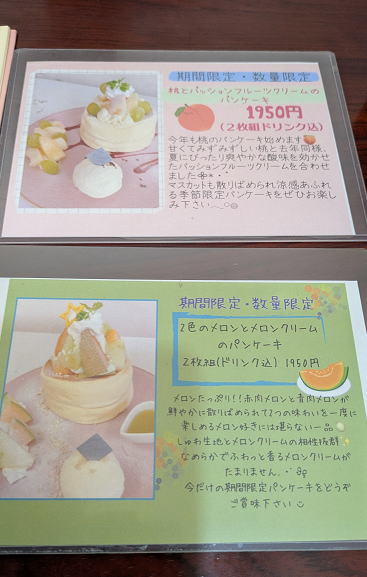 期間限定・数量限定
桃とパッションフルーツクリームの
パンケーキ
1950円
(2枚組ドリンク込)
今年も桃のパンケーキ始めます
甘くてみずみずしい桃と去年同様、
夏にぴったり爽やかな酸味を効かせ
たパッションフルーツクリームを合わせ
ました
マスカットも散りばめられ涼感あふれ
る季節限定パンケーキをぜひお楽し
み下さい
期間限定・数量限定
2色のメロンとメロンクリーム
のパンケーキ
2枚組(ドリンク込) 1950円
メロンたっぷり!!赤肉メロンと青肉メロンが
鮮やかに散りばめられて2つの味わいを一度に
楽しめるメロン好きには堪らない一品
しゅわ生地とメロンクリームの相性抜群
なめらかでふわっと香るメロンクリームが
たまりません。
今だけの期間限定パンケーキをどうぞ
ご賞味下さい